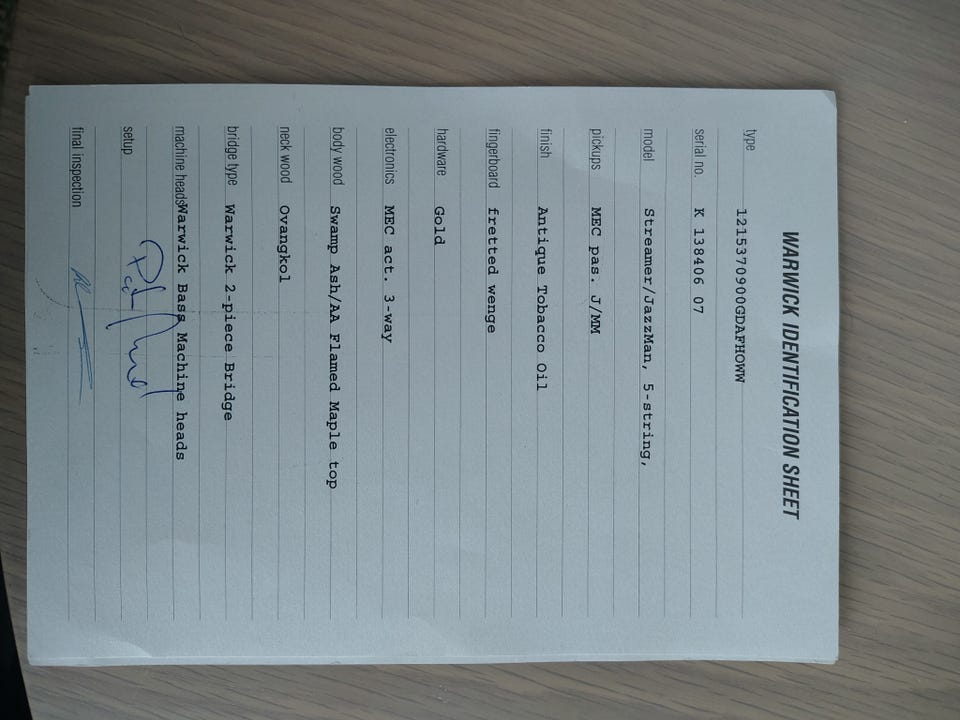 WARWICK IDENTIFICATION SHEET
type 1215370900GDAFHOWW
serial no. K 138406 07
model Streamer/JazzMan, 5-string,
pickups MEC pas. J/MM
finish Antique Tobacco Oil
fingerboard fretted wenge
hardware Gold
electronics MEC act. 3-way
body wood Swamp Ash/AA Flamed Maple top
neck wood Ovangkol
bridge type Warwick 2-piece Bridge
machine heads Warwick Bass Machine heads
setup
final inspection